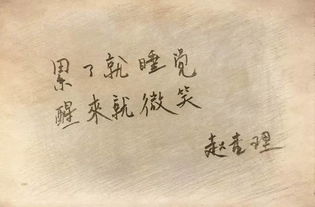 累了就睡觉
醒來就微笑
赵吉理